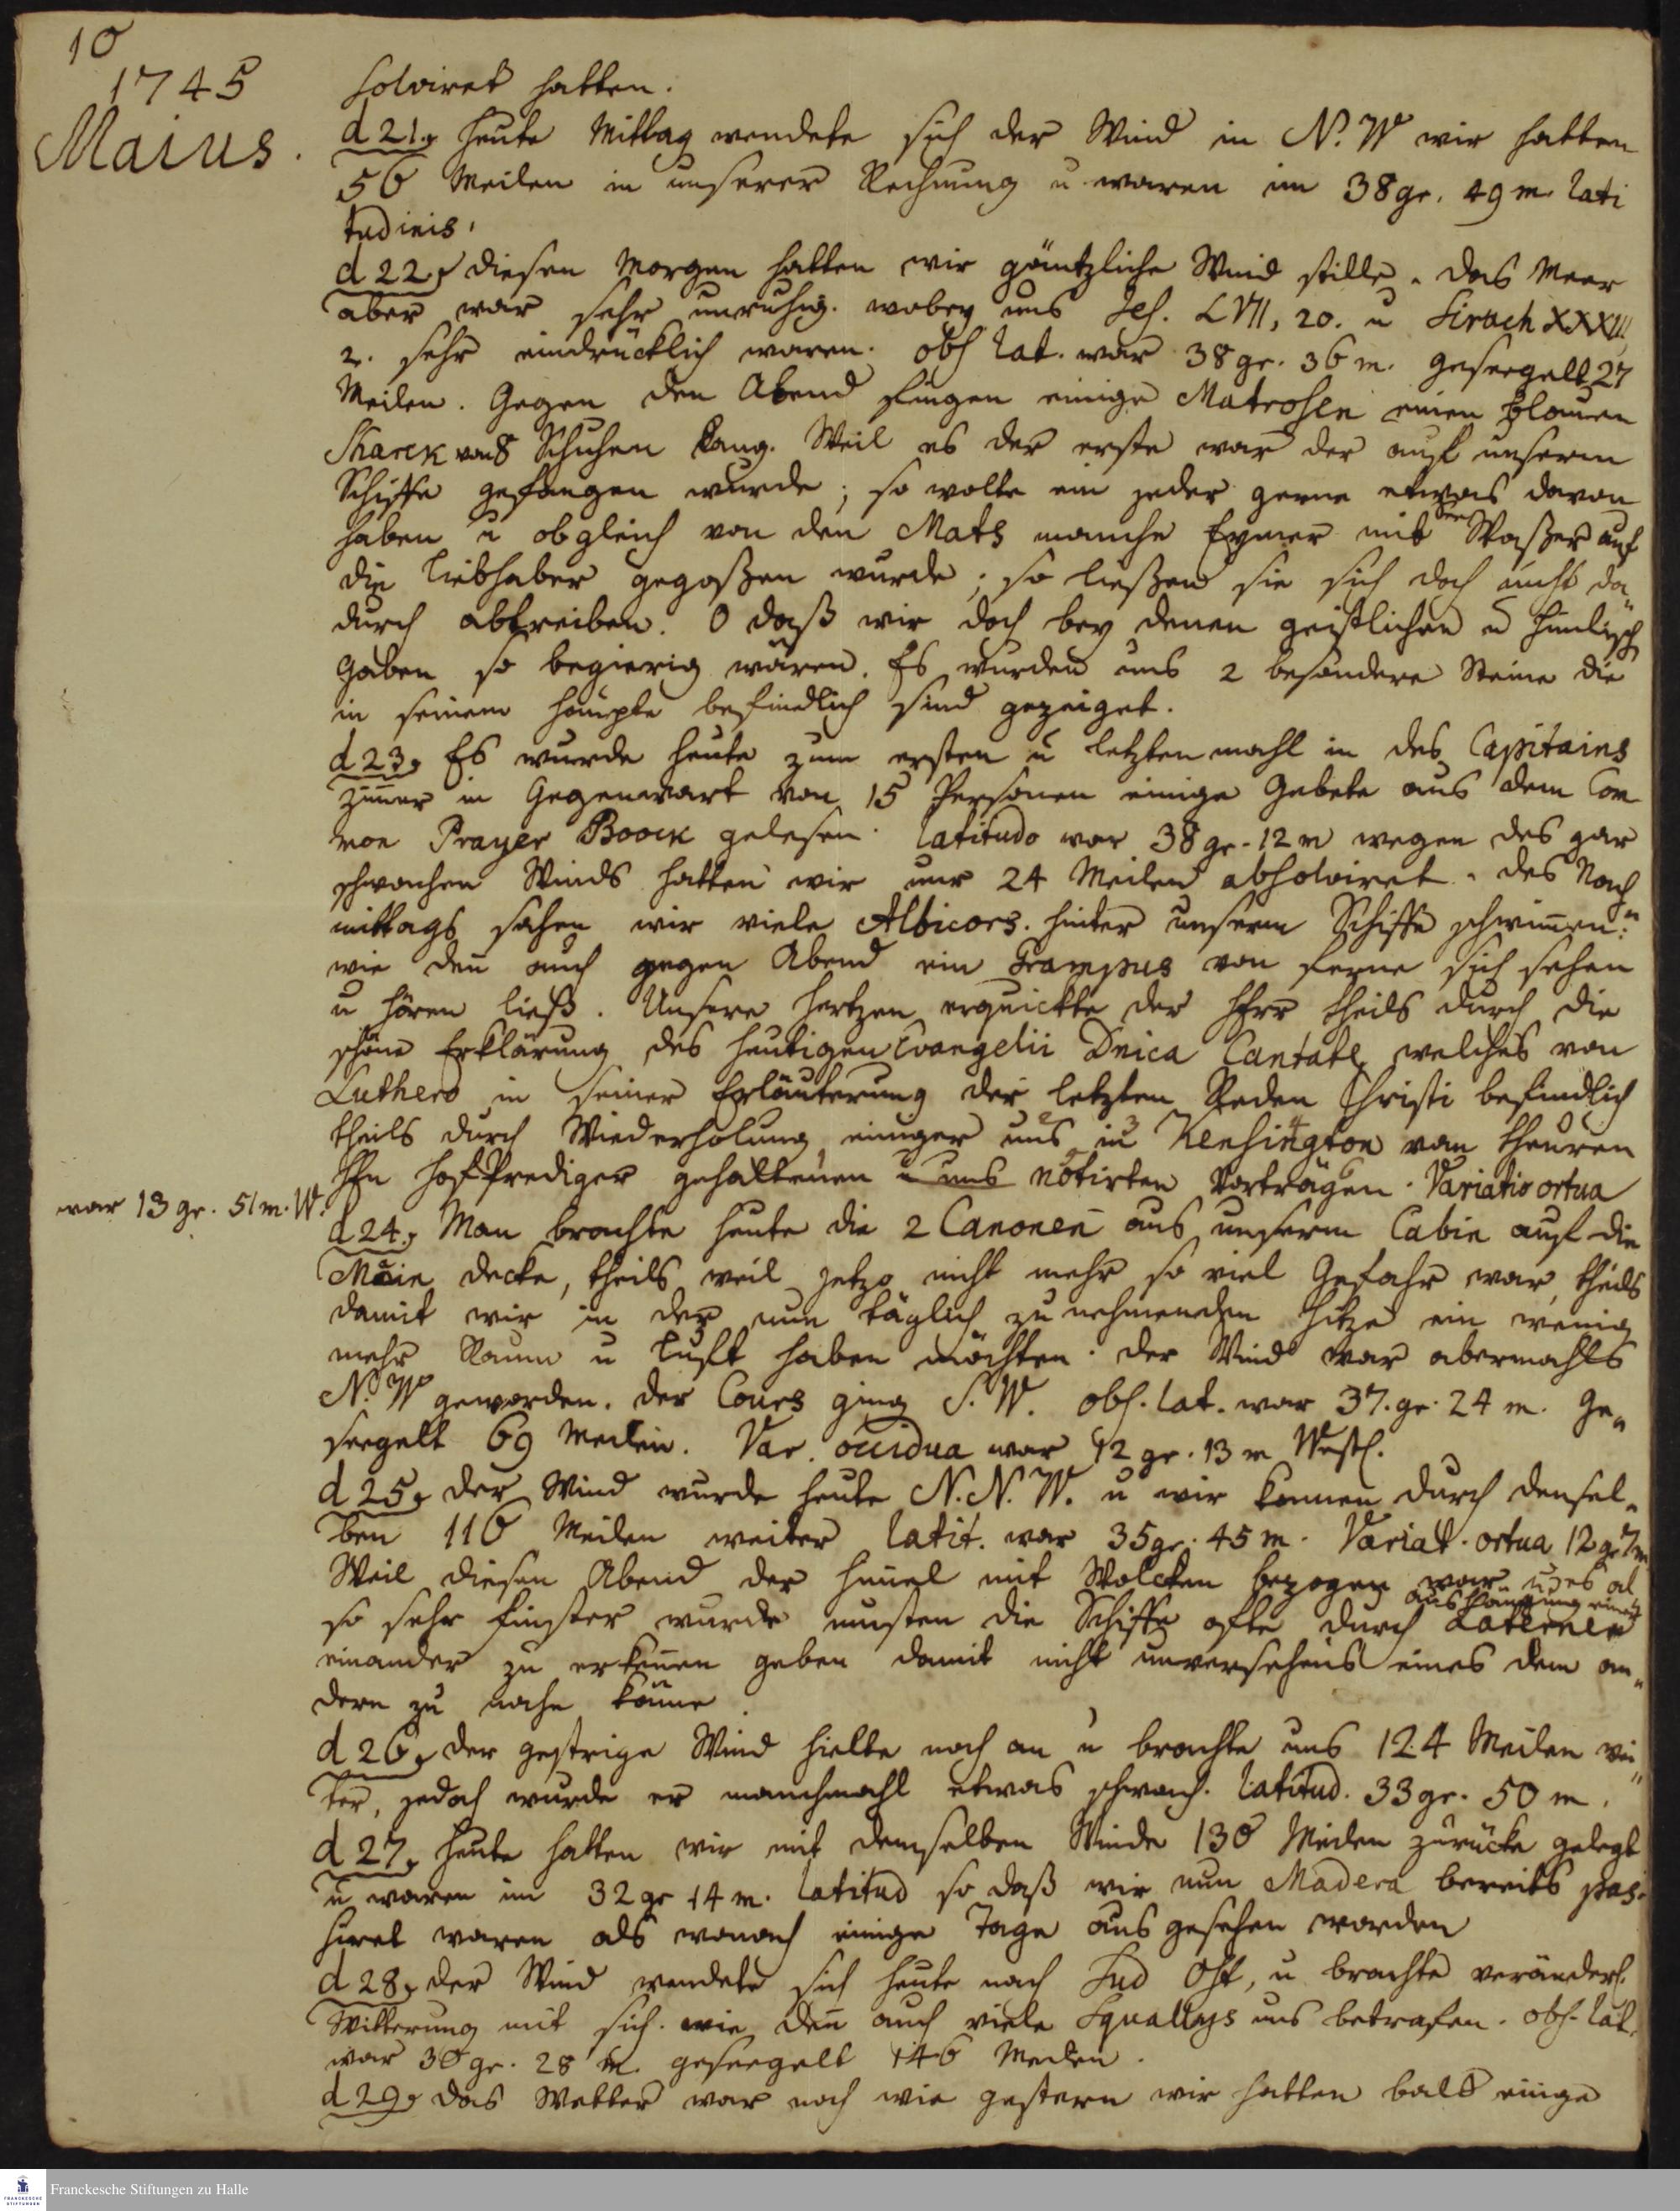 10
1745
Maius.
solviret hatten.
d 21. Heute Mittag wendete sich der Wind in N. W wir hatten
56 Meilen in unserer Rechnung u. waren im 38 gr. 49 m. lati
tudinis.
d 22. diesen Morgen hatten wir gäntzliche Wind stille. das Meer
aber war sehr unruhig. wobey uns Jes. LVII, 20. u Sirach XXXIII
2. sehr eindrücklich waren. obs lat. war 38 gr. 36 m. geseegelt 27
Meilen. Gegen den Abend fingen einige Matrosen einen blauen
Sharck von 8 Schuhen lang. Weil es der erste war der auf unserm
Schiffe gefangen wurde; so wolte ein jeder gerne etwas davon
haben u obgleich von den Mats manche Eymer mit Waßer auf
die Liebhaber gegoßen wurde; so ließen sie sich doch nicht da
durch abtreiben. O daß wir doch bey denen geistlichen u himlisch
Gaben so begierig wären. Es wurden uns 2 besondere Steine die
in seinem Haupte befindlich sind gezeiget.
d 23. Es wurde heute zum ersten u letzten mahl in des Capitains
Zimer in Gegenwart von 15 Personen einige Gebete aus dem Com
mon Prayer Boock gelesen. latitudo war 38 gr. 12 m wegen des gar
schwachen Winds hatten wir nur 24 Meilen absolviret. des Nach
mittags sahen wir viele Albicors. hinter unserm Schiffe schwimen:
wie den auch gegen Abend ein Grampus von ferne sich sehen
u hören ließ. Unsere Hertzen erquickte der HErr theils durch die
schöne Erklärung des heutigen Evangelii Dnica Cantate welches von
Luthero in seiner Erläuterung der letzten Reden Christi befindlich
theils durch Wiederholung einiger uns in Kensington von theuren
Hn Hof Prediger gehaltenen u uns notirten Vorträgen. Variatio ortua
war 13 gr. 51 m. W.
d 24. Man brachte heute die 2 Canonen aus unserm Cabin auf die
Main decke, theils weil jetzo nicht mehr so viel Gefahr war, theils
damit wir in der nun täglich zu nehmenden Hitze ein wenig
mehr Raum u Luft haben möchten. der Wind war abermahls
N. W geworden. der Cours ging S. W. obs. lat. war 37. gr. 24 m. Ge
seegelt 69 Meilen. Var. occidua war 12 gr. 13 m Westl.
d 25. der Wind wurde heute N. N. W. u wir kamen durch densel
ben 116 Meilen weiter latit. war 35 gr. 45 m. Variat. ortua 12 gr 7 m
Weil diesen Abend der Himel mit Wolcken bezogen war u es al
so sehr finster wurde musten die Schiffe ofte durch aushangung einer Laternen
einander zu erkennen geben damit nicht unversehens eines dem an
dern zu nahe käme.
d 26. der gestrige Wind hielte noch an u brachte uns 124 Meilen wei
ter, jedoch wurde er manchmahl etwas schwach. latitud. 33 gr. 50 m.
d 27. Heute hatten wir mit demselben Winde 136 Meilen zurücke gelegt
u waren im 32 gr 14 m. latitud so daß wir nun Madera bereits pas
siret waren als wonach einige Tage aus gesehen worden
d 28. der Wind wendete sich heute nach Sud Ost, u brachte veränderl.
Witterung mit sich. wie den auch viele Squallys uns betrafen. obs. lat.
war 30 gr. 28 m. geseegelt 146 Meilen.
d 29. das Wetter war noch wie gestern wir hatten bald einige
Franckesche Stiftungen zu Halle